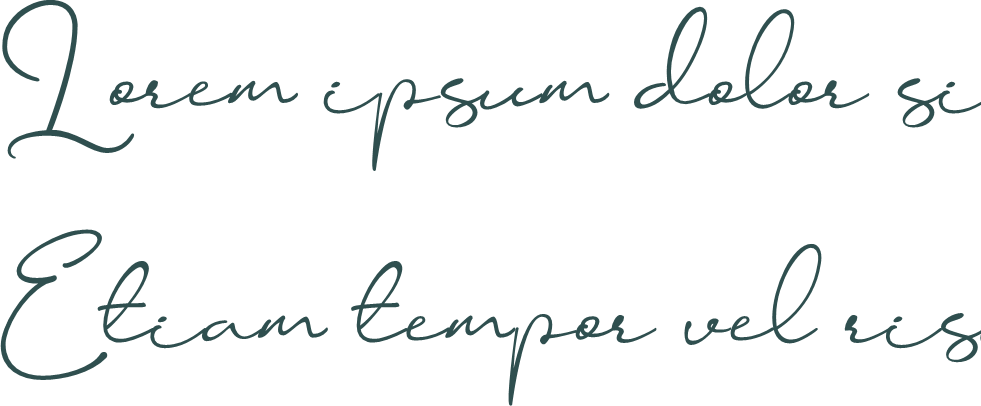 Lorem ipsum dolor si
Etiam tempor vel ris